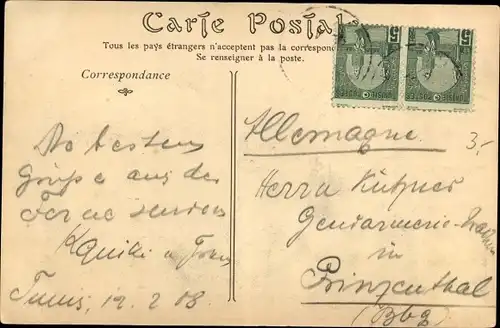 Carte Postale
Tous les pays étrangers n'acceptent pas la correspond
Se renseigner à la poste.
Correspondance
5 5
besten
Grüße aus der
Ferne senden
Tunis, 19. 2 08
Allemagne
3,-
Herrn
Gendarmerie-
in
Prinzenthal
(Bbg)